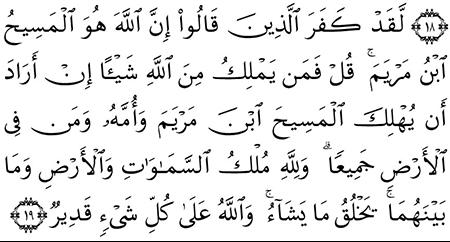 ﴿١٨﴾ لَّقَدْ كَفَرَ ٱلَّذِينَ قَالُوٓا۟ إِنَّ ٱللَّهَ هُوَ ٱلْمَسِيحُ
ٱبْنُ مَرْيَمَ ۚ قُلْ فَمَن يَمْلِكُ مِنَ ٱللَّهِ شَيْـًٔا إِنْ أَرَادَ
أَن يُهْلِكَ ٱلْمَسِيحَ ٱبْنَ مَرْيَمَ وَأُمَّهُۥ وَمَن فِى
ٱلْأَرْضِ جَمِيعًا ۗ وَلِلَّهِ مُلْكُ ٱلسَّمَـٰوَٰتِ وَٱلْأَرْضِ وَمَا
بَيْنَهُمَا ۚ يَخْلُقُ مَا يَشَآءُ ۚ وَٱللَّهُ عَلَىٰ كُلِّ شَىْءٍ قَدِيرٌ ﴿١٩﴾